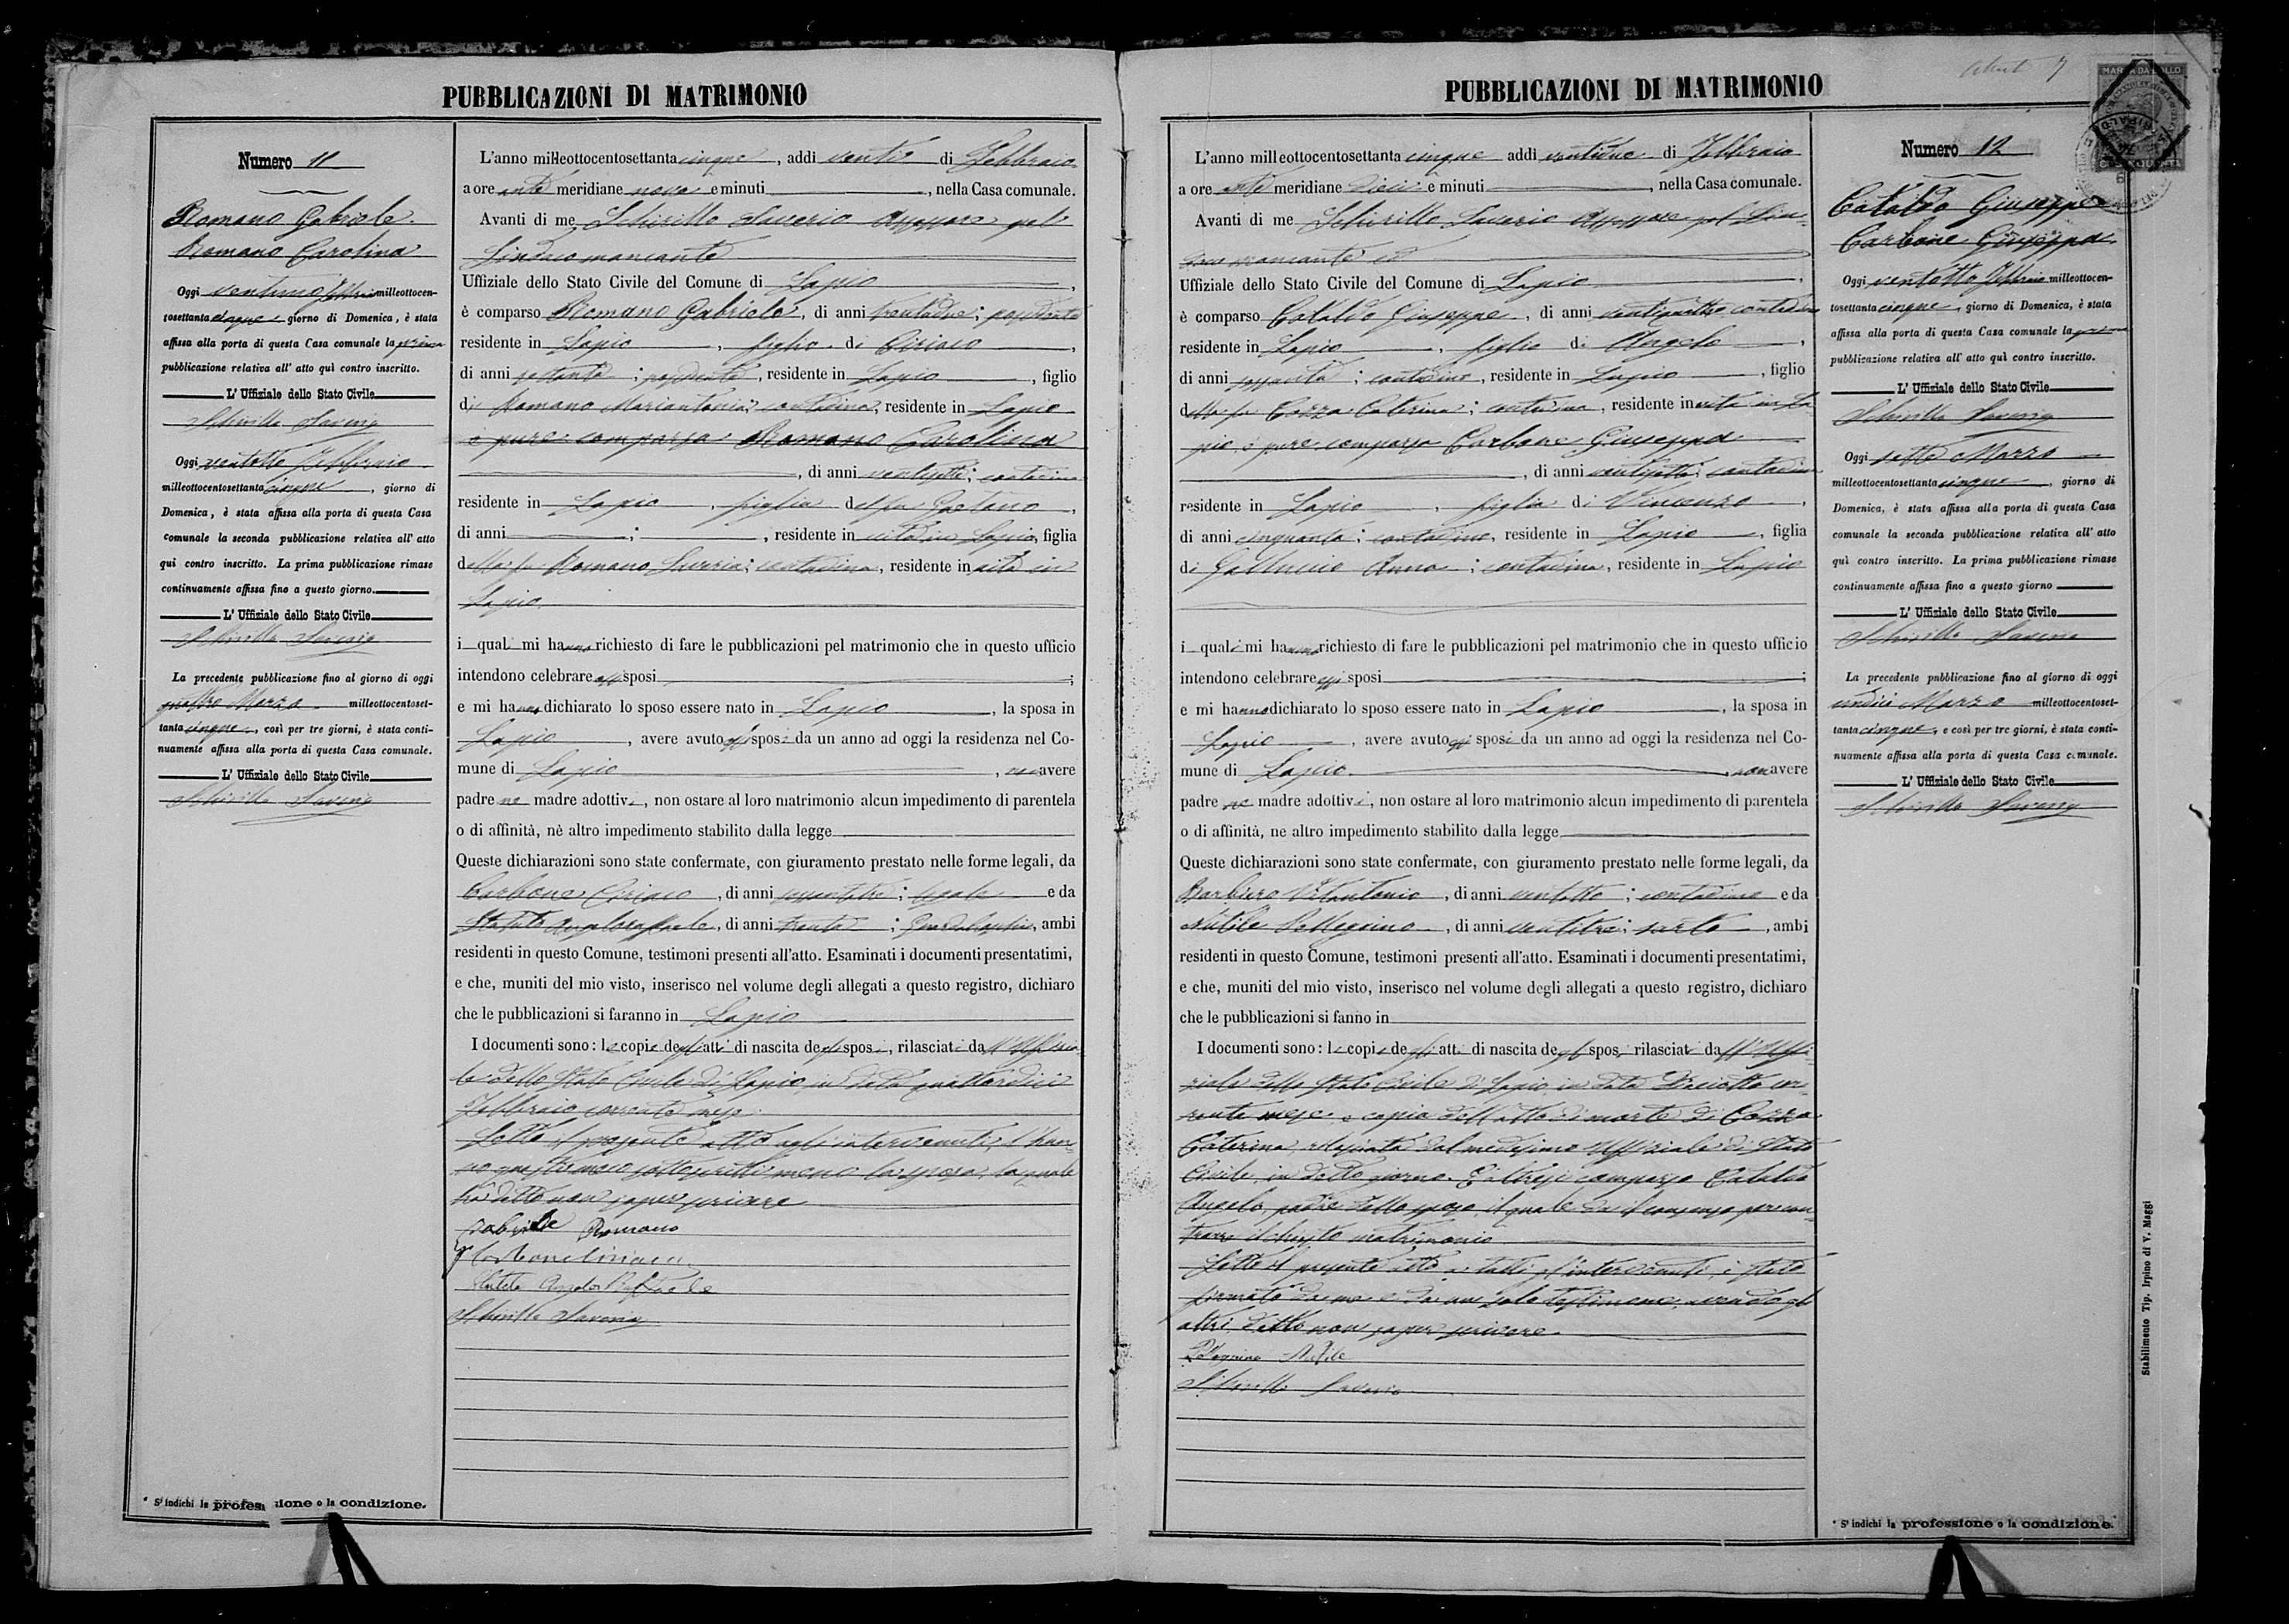 PUBBLICAZIONI DI MATRIMONIO
Numero 11
Romano Gabriele
Romano Carolina
Oggi ventuno Febbraio milleottocen-
tosettantacinque giorno di Domenica, è stata
affissa alla porta di questa Casa comunale la prima
pubblicazione relativa all' atto quì contro inscritto.
L' Uffiziale dello Stato Civile
Schirillo Saverio
Oggi ventotto Febbraio
milleottocentosettantacinque, giorno di
Domenica, è stata affissa alla porta di questa Casa
comunale la seconda pubblicazione relativa all' atto
qui contro inscritto. La prima pubblicazione rimase
continuamente affissa fino a questo giorno.
L' Uffiziale dello Stato Civile
Schirillo Saverio
La precedente pubblicazione fino al giorno di oggi
quattro Marzo milleottocentoset-
tantacinque, così per tre giorni, è stata conti-
nuamente affissa alla porta di questa Casa comunale.
L' Uffiziale dello Stato Civile
Schirillo Saverio
* S' indichi la professione o la condizione.
L'anno milleottocentosettantacinque, addì venti di Febbraio
a ore ante meridiane nove e minuti, nella Casa comunale.
Avanti di me Schirillo Saverio Assessore pel
Sindaco mancante
Uffiziale dello Stato Civile del Comune di Lapio,
è comparso Romano Gabriele, di anni trentadue; possidente
residente in Lapio, figlio di Ciriaco,
di anni settanta; possidente, residente in Lapio, figlio
di Romano Mariantonia; contadina, residente in Lapio
è pure comparsa Romano Carolina
, di anni ventisette; contadina
residente in Lapio, figlia del fu Gaetano,
di anni ; , residente in vita in Lapio, figlia
della fu Romano ; contadina, residente in vita in
Lapio.
i quali mi hanno richiesto di fare le pubblicazioni pel matrimonio che in questo ufficio
intendono celebrare essi sposi;
e mi hanno dichiarato lo sposo essere nato in Lapio, la sposa in
Lapio, avere avuto essi sposi da un anno ad oggi la residenza nel Co-
mune di Lapio, non avere
padre ne madre adottivi, non ostare al loro matrimonio alcun impedimento di parentela
o di affinità, nè altro impedimento stabilito dalla legge
Queste dichiarazioni sono state confermate, con giuramento prestato nelle forme legali, da
Carbone Ciriaco, di anni sessantatre; e da
Statuto Angeloraffaele, di anni trenta; , ambi
residenti in questo Comune, testimoni presenti all'atto. Esaminati i documenti presentatimi,
e che, muniti del mio visto, inserisco nel volume degli allegati a questo registro, dichiaro
che le pubblicazioni si faranno in Lapio
I documenti sono: le copie degli atti di nascita degli sposi, rilasciati dall'Uffizia-
le dello Stato Civile di Lapio in data quattordici
Febbraio corrente mese.
Letto il presente atto agl'intervenuti, l'han-
no questi meco sottoscritti meno la sposa, la quale
ha detto non saper scrivere
Gabriele Romano
Carbone Ciriaco
Statuto Angelo Raffaele
Schirillo Saverio
PUBBLICAZIONI DI MATRIMONIO
MARCA DA BOLLO
L'anno milleottocentosettantacinque addì ventidue di Febbraio
a ore ante meridiane dieci e minuti, nella Casa comunale.
Avanti di me Schirillo Saverio Assessore pel Sin-
daco mancante
Uffiziale dello Stato Civile del Comune di Lapio,
è comparso Cataldo Giuseppe, di anni ventiquattro contadino
residente in Lapio, figlio di Angelo,
di anni sessanta; contadino, residente in Lapio, figlio
della fu Cozza Caterina; contadina, residente in vita in La-
pio, è pure comparsa Carbone Giuseppa
, di anni ventisette; contadina
residente in Lapio, figlia di Vincenzo,
di anni cinquanta; contadino, residente in Lapio, figlia
di Galluccio Anna; contadina, residente in Lapio
i quali mi hanno richiesto di fare le pubblicazioni pel matrimonio che in questo ufficio
intendono celebrare essi sposi;
e mi hanno dichiarato lo sposo essere nato in Lapio, la sposa in
Lapio, avere avuto essi sposi da un anno ad oggi la residenza nel Co-
mune di Lapio, non avere
padre ne madre adottivi, non ostare al loro matrimonio alcun impedimento di parentela
o di affinità, ne altro impedimento stabilito dalla legge
Queste dichiarazioni sono state confermate, con giuramento prestato nelle forme legali, da
Barbieri Vitantonio, di anni ventotto; contadino e da
Nutile Pellegrino, di anni ventitre; sarto, ambi
residenti in questo Comune, testimoni presenti all'atto. Esaminati i documenti presentatimi,
e che, muniti del mio visto, inserisco nel volume degli allegati a questo registro, dichiaro
che le pubblicazioni si fanno in
I documenti sono: le copie degli atti di nascita degli sposi rilasciati dall'Uffi-
ziale dello Stato Civile di Lapio in data diciotto cor-
rente mese, e copia dell'atto di morte di Cozza
Caterina, rilasciata dal medesimo Uffiziale di Stato
Civile, in detto giorno. È altresì comparso Cataldo
Angelo, padre dello sposo, il quale dà il consenso per con-
trarre il chiesto matrimonio
Letto il presente atto a tutti gl'intervenuti, è stato
firmato da me e da un solo testimone, avendo gli
altri detto non saper scrivere.
Pellegrino Nutile
Schirillo Saverio
Numero 12
Cataldo Giuseppe
Carbone Giuseppa
Oggi ventotto Febbraio milleottocen-
tosettantacinque, giorno di Domenica, è stata
affissa alla porta di questa Casa comunale la prima
pubblicazione relativa all' atto quì contro inscritto.
L' Uffiziale dello Stato Civile
Schirillo Saverio
Oggi sette Marzo
milleottocentosettantacinque, giorno di
Domenica, è stata affissa alla porta di questa Casa
comunale la seconda pubblicazione relativa all' atto
quì contro inscritto. La prima pubblicazione rimase
continuamente affissa fino a questo giorno
L' Uffiziale dello Stato Civile
Schirillo Saverio
La precedente pubblicazione fino al giorno di oggi
undici Marzo milleottocentoset-
tantacinque, e così per tre giorni, è stata conti-
nuamente affissa alla porta di questa Casa comunale.
L' Uffiziale dello Stato Civile
Schirillo Saverio
* S' indichi la professione o la condizione.
Stabilimento Tip. Irpino di V. Maggi